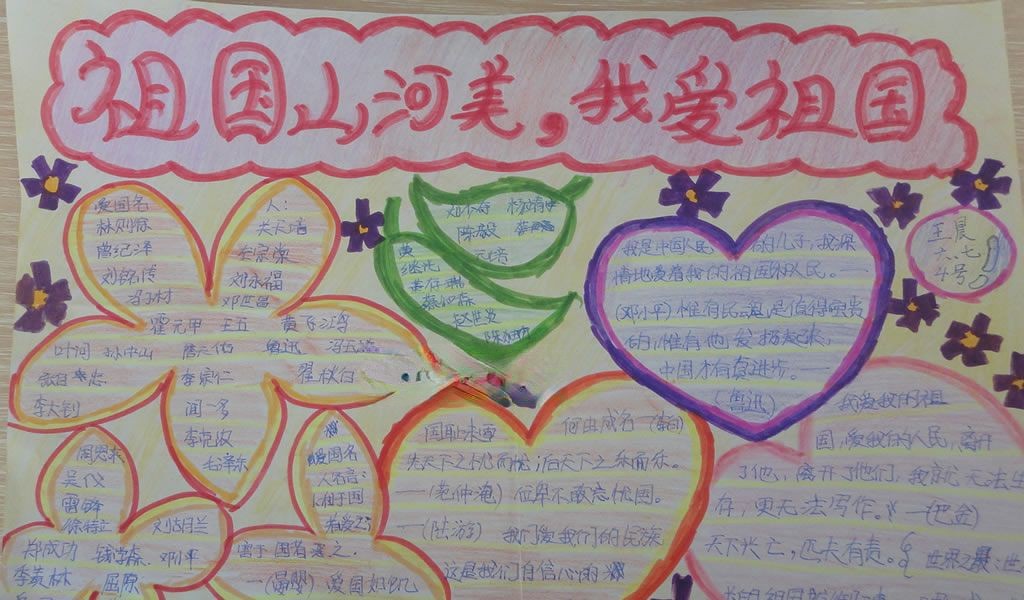 祖国山河美,我爱祖国
爱国名
林则徐
曾纪泽
刘铭传
冯子材
人:
关天培
左宗棠
刘永福
邓世昌
霍元甲 王五 黄飞鸿
叶问 孙中山 詹天佑 鲁迅 冯玉祥
张自忠 李宗仁 瞿秋白
李大钊 闻一多
李克农
毛泽东
邓小平 杨靖宇
陈毅
黄
继光
黄
赵世炎
我是中国人民的儿子,我深
情地爱着我们的祖国和人民。——
(邓小平)惟有民魂是值得宝贵
的,惟有他发扬起来,
中国才有真进步。——
(鲁迅)
王晨
六、七
4号
周恩来
吴仪
雷锋
徐特立
郑成功 钱学森 邓小平
李素林 屈原
刘胡兰
爱国名
人名言:
利于国
者爱之;
害于国者恶之。
—(晏婴) 爱国如饥
国耻未雪 何由成名—(李白)
先天下之忧而忧,后天下之乐而乐。
——(范仲淹) 位卑不敢忘忧国。
——(陆游) 我们爱我们的民族
这是我们自信心的
我爱我的祖
国,爱我的人民,离开
了他,离开了他们,我就无法生
存,更无法写作。—(巴金)
天下兴亡,匹夫有责。